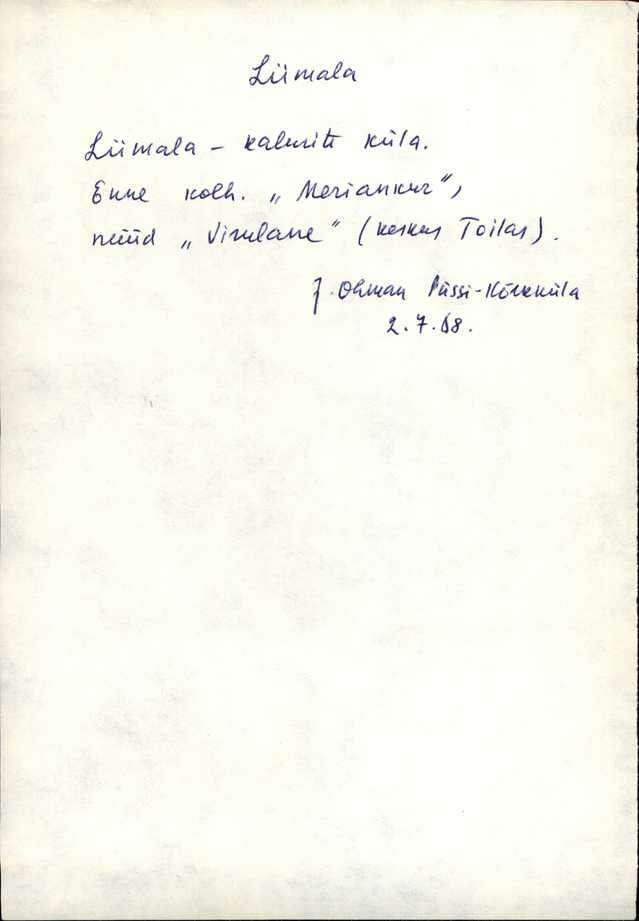 Liimala
Liimala – kalurite küla.
Enne kolh. „Meriankur",
nüüd „Virulane" (keskus Toilas).
J. Ohman Püssi-Kõrkküla
2.7.68.